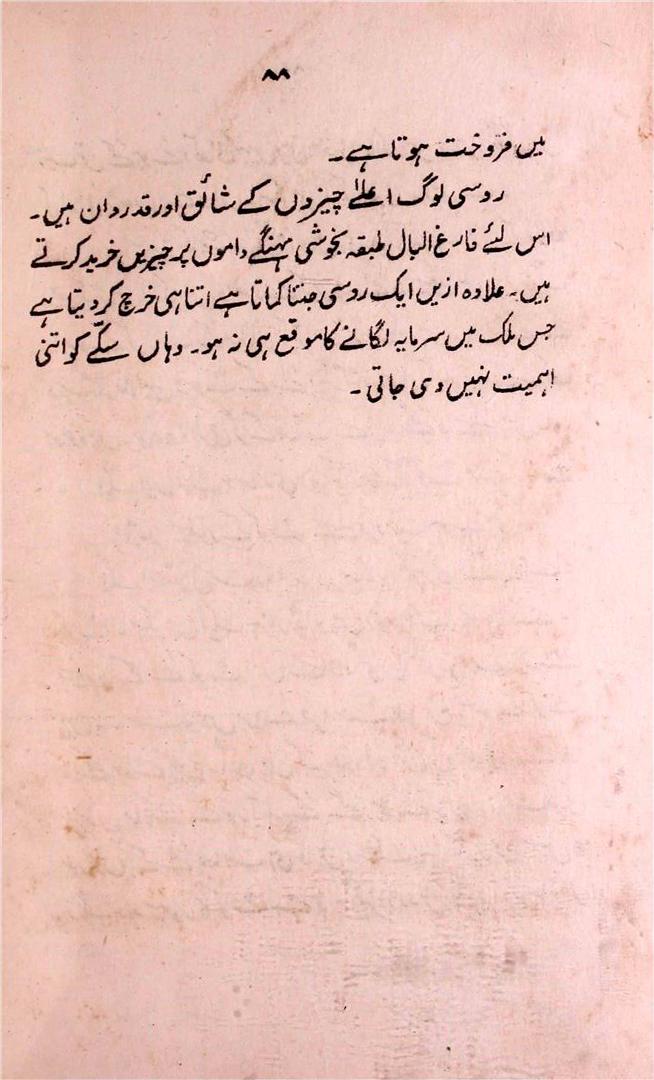 ۸۸
میں فروخت ہوتا ہے۔
روسی لوگ اعلےٰ چیزوں کے شائق اور قدردان ہیں۔
اس لئے فارغ البال طبقہ بخوشی مہنگے داموں پر چیزیں خرید کرتے
ہیں۔ علاوہ ازیں ایک روسی جتنا کماتا ہے اتنا ہی خرچ کر دیتا ہے
جس ملک میں سرمایہ لگانے کا موقع ہی نہ ہو۔ وہاں سکّے کو اتنی
اہمیت نہیں دی جاتی۔